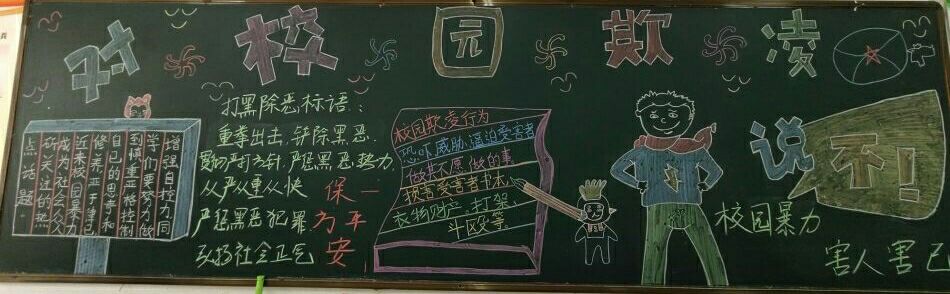 对校园欺凌
说不!
增强自控力,同
学们要努力做
到慎重严格控制
自己的思考和
修养正于律己
近来校园暴力
成为社会人人
所关注的热
点话题。
打黑除恶标语:
重拳出击,铲除黑恶.
严打方针,严惩黑恶势力
从严从重从快
严惩黑恶犯罪
弘扬社会正气
保一
方平
安
校园欺凌行为
恐吓,威胁,逼迫受害者
做其不愿做的事
损害受害者书本,
衣物财产,打架、
斗殴等.
校园暴力
害人害己